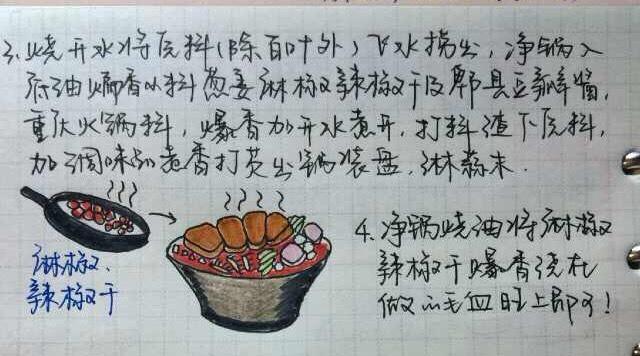 3. 烧开水将底料(除百叶外)飞水捞出,净锅入
底油煸香小料葱姜麻椒辣椒干及郫县豆瓣酱,
重庆火锅料,爆香加开水煮开,打料渣下底料,
加调味品煮香打芡出锅装盘,淋蒜末.
麻椒、
辣椒干
4. 净锅烧油将麻椒
辣椒干爆香浇在
做的毛血旺上即可!